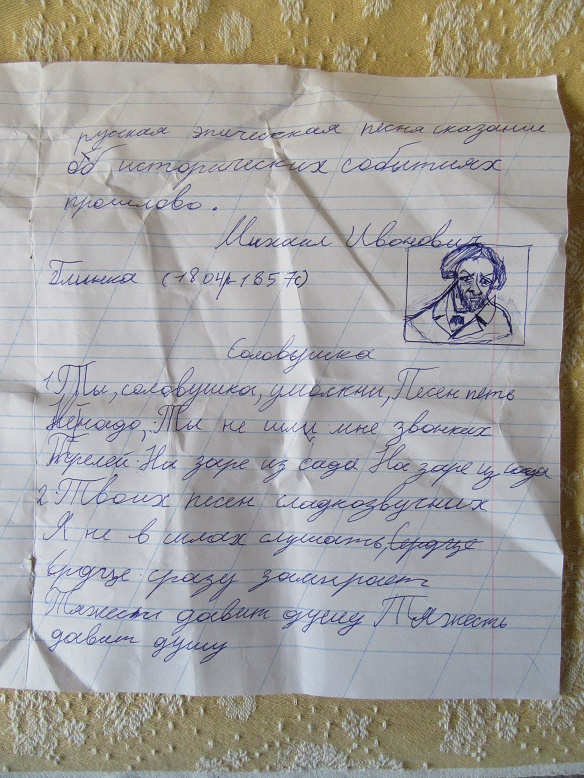 русская эпическая песня сказание
об исторических событиях
прошлово.
Михаил Иванович
Глинка (1804г-1857г)
Соловушка
1. Ты, соловушка, умолкни, Песен петь
не надо, Ты не шли мне звонких
Трелей На заре из сада На заре из сада
2. Твоих песен сладкозвучних
Я не в силах слушать, Сердце
Сердце сразу замирает
Тяжесть давит душу Тяжесть
давит душу